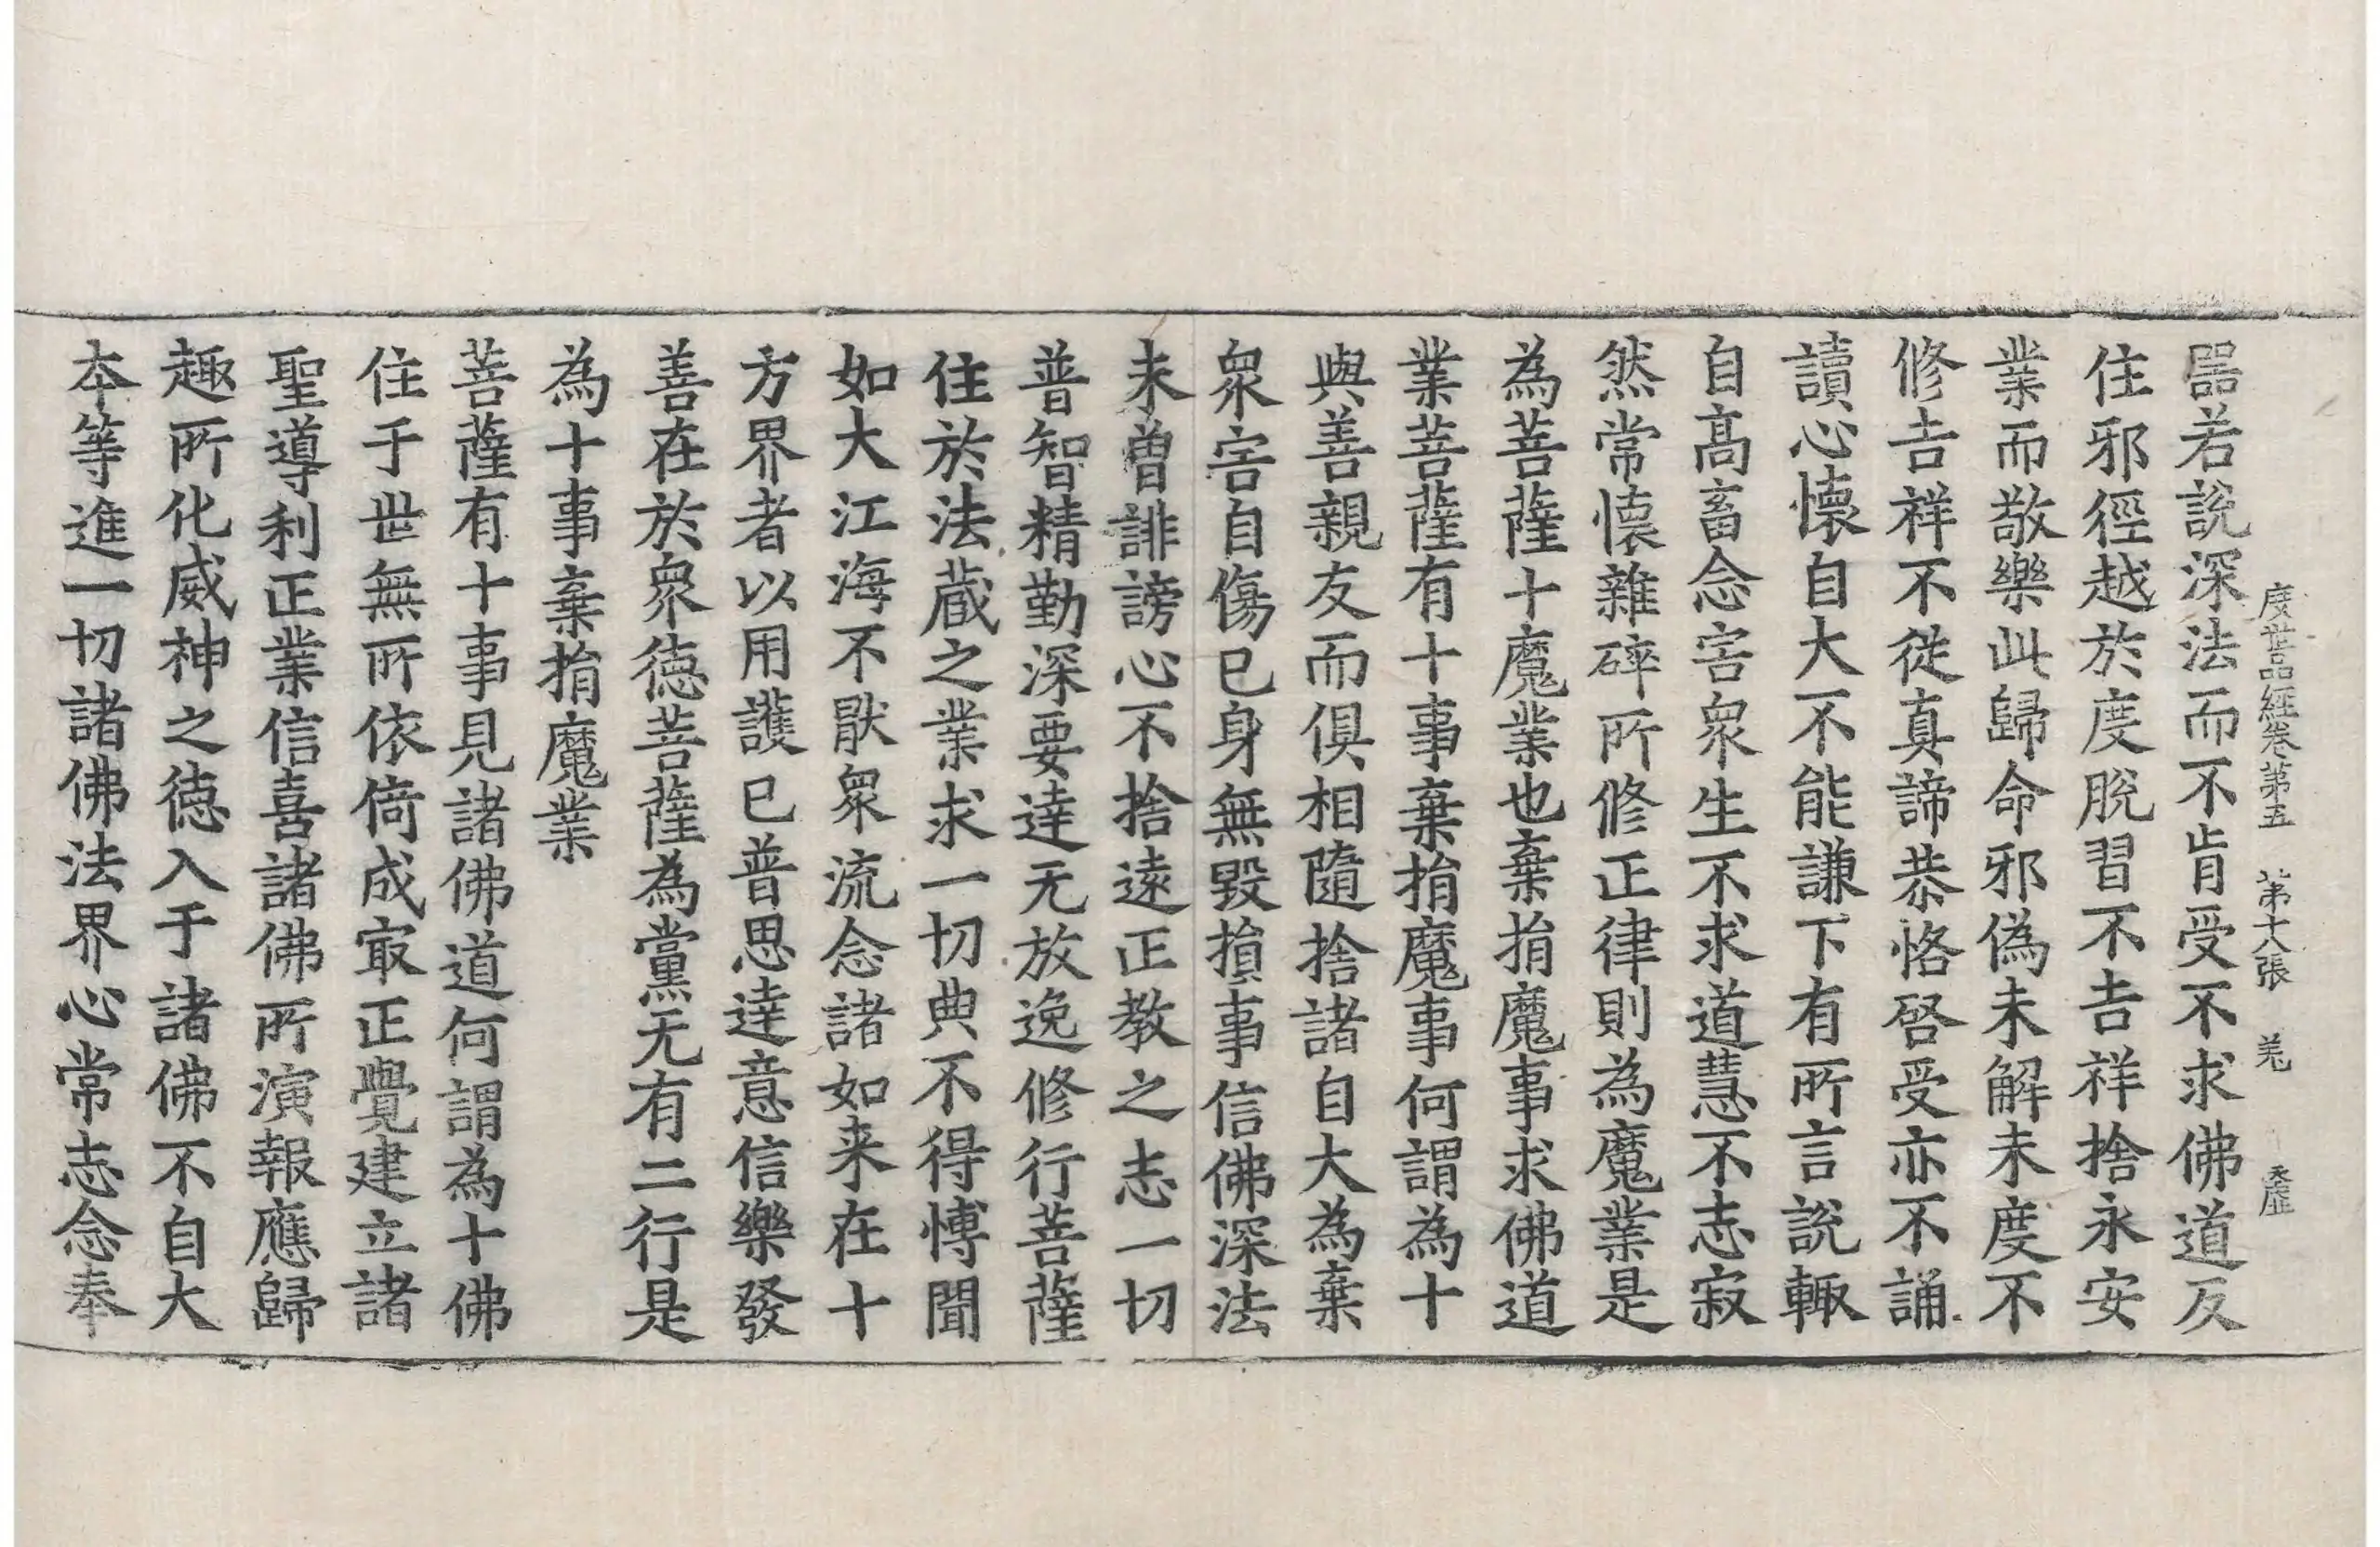 度世品経卷第五 第十八張 羌 天虛
噐若說深法而不肯受不求佛道反
住邪徑越於度脫習不吉祥捨永安
業而敬樂此歸命邪偽未解未度不
修吉祥不從真諦恭恪啓受亦不誦
讀心懷自大不能謙下有所言說輙
自髙畜念害衆生不求道慧不志寂
然常懷雜碎所修正律則為魔業是
為菩薩十魔業也棄捐魔事求佛道
業菩薩有十事棄捐魔事何謂為十
與善親友而俱相隨捨諸自大為棄
衆害自傷已身無毀損事信佛深法
未曾誹謗心不捨遠正教之志一切
普智精勤深要達无放逸修行菩薩
住於法蔵之業求一切典不得愽聞
如大江海不猒衆流念諸如来在十
方界者以用護已普思達意信樂發
善在於衆徳菩薩為黨无有二行是
為十事棄捐魔業
菩薩有十事見諸佛道何謂為十佛
住于世無所依倚成㝡正覺建立諸
聖導利正業信喜諸佛所演報應歸
趣所化威神之徳入于諸佛不自大
本等進一切諸佛法界心常志念奉